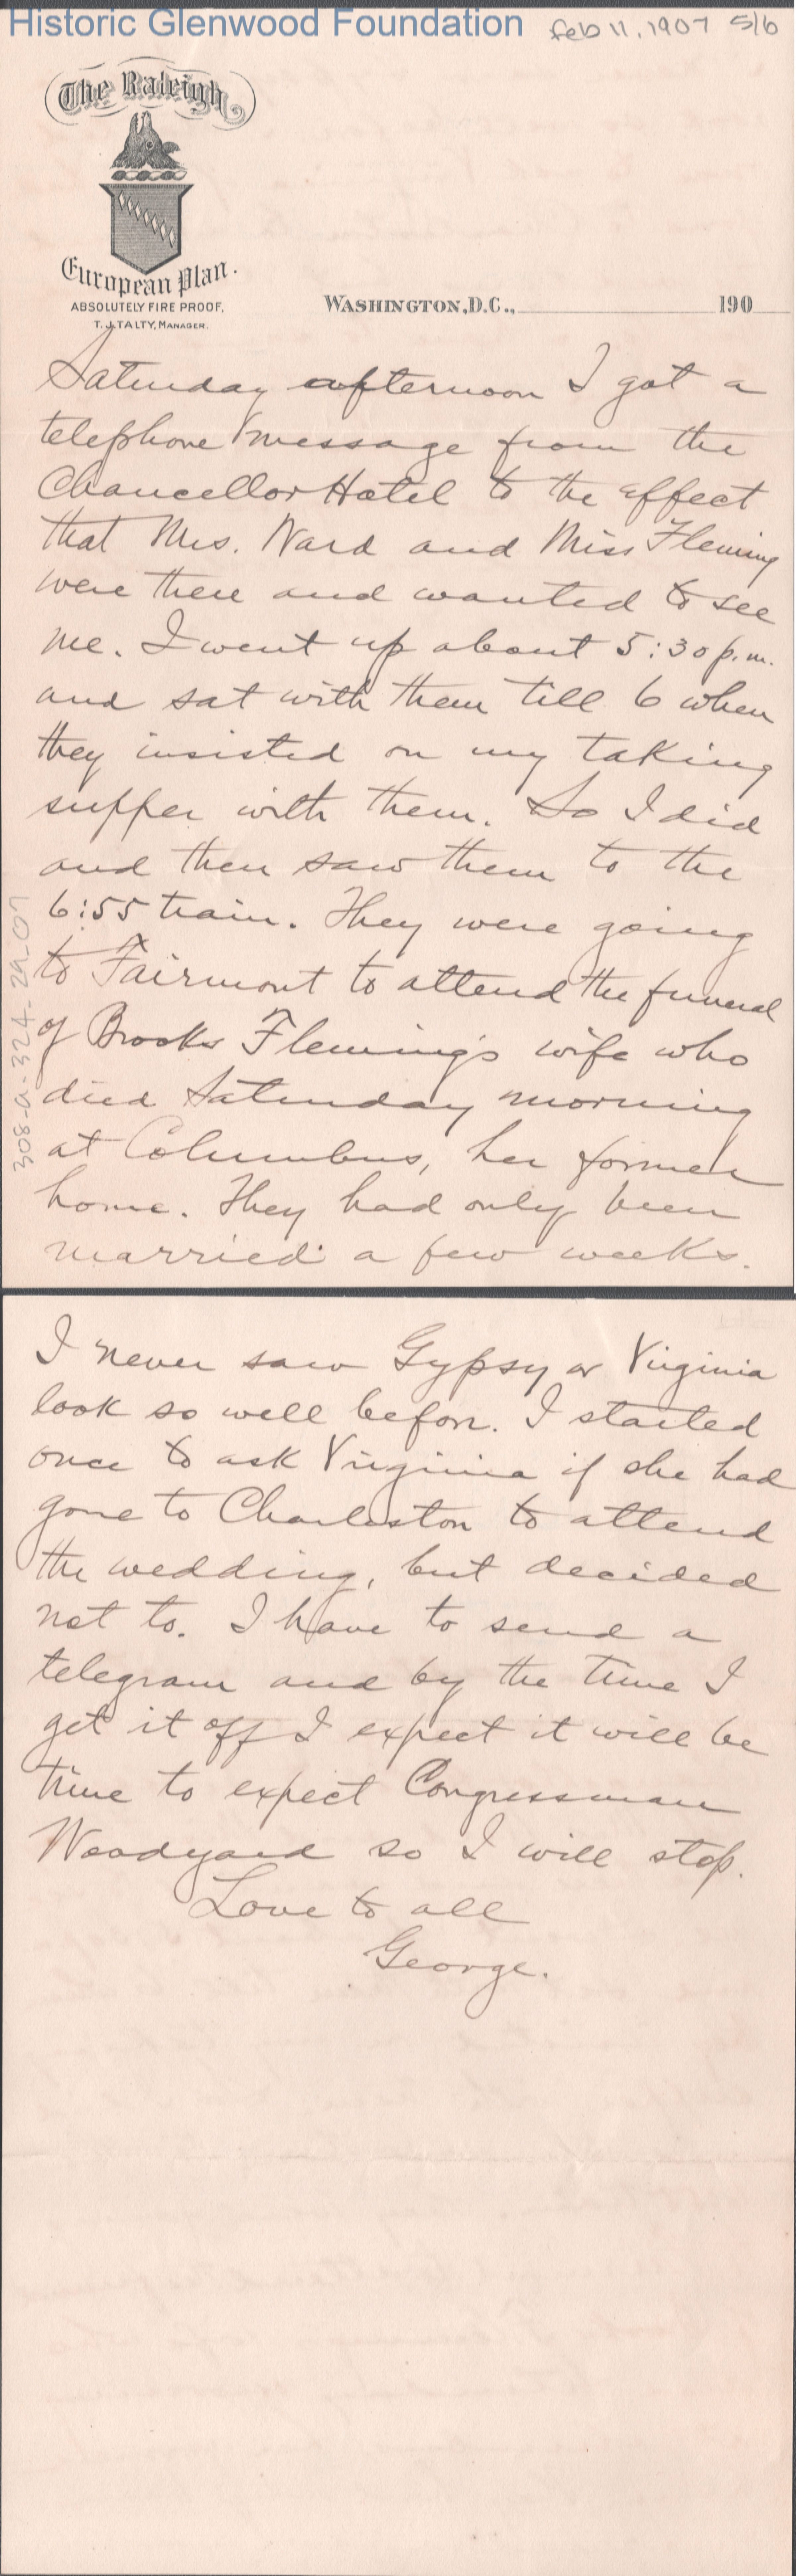 Historic Glenwood Foundation Feb 11, 1907 5/6
The Raleigh,
European Plan.
ABSOLUTELY FIRE PROOF.
T. J. TALTY, MANAGER.
WASHINGTON, D.C., 190
Saturday afternoon I got a
telephone message from the
Chancellor Hotel to the effect
that Mrs. Ward and Miss Fleming
were there and wanted to see
me. I went up about 5:30 p.m.
and sat with them till 6 when
they insisted on my taking
supper with them. So I did
and then saw them to the
6:55 train. They were going
to Fairmont to attend the funeral
of Brooks Fleming's wife who
died Saturday morning
at Columbus, her former
home. They had only been
married a few weeks.
308-a-324-29-07
I never saw Gypsy or Virginia
look so well before. I started
once to ask Virginia if she had
gone to Charleston to attend
the wedding, but decided
not to. I have to send a
telegram and by the time I
get it off I expect it will be
time to expect Congressman
Woodyard so I will stop.
Love to all
George.